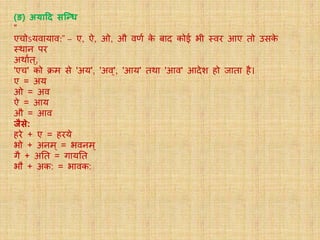 (ङ) अयादि सन्धि
"
एचोऽयवायावः" – ए, ऐ, ओ, औ वर्ण के बाद कोई भी स्वर आए तो उसके
स्थान पर
अर्थात्,
'एच' को क्रम से 'अय', 'अव्', 'आय' तथा 'आव' आदेश हो जाता है।
ए = अय
ओ = अव
ऐ = आय
औ = आव
जैसे:
हरे + ए = हरये
भो + अनम् = भवनम्
गै + अति = गायति
भौ + अक: = भावक: